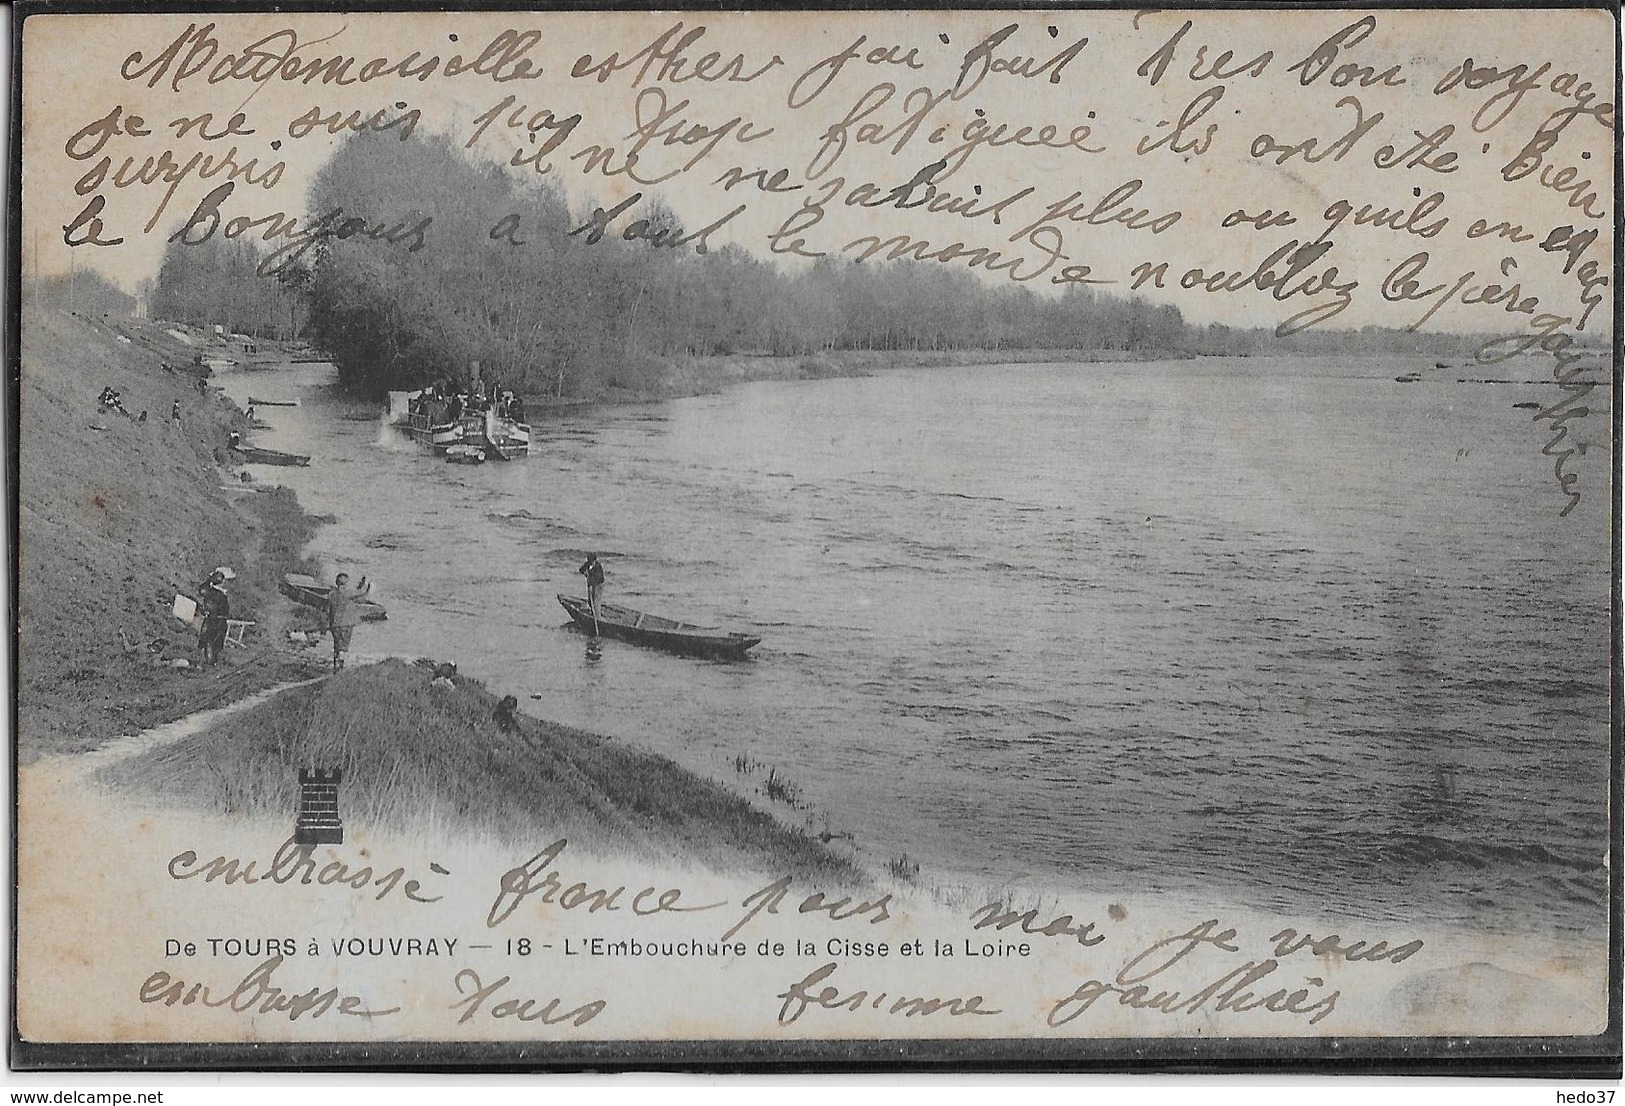 Mademoiselle esther j'ai fait tres bon voyage
je ne suis pas trop fatiguée ils ont été bien
surpris il ne ne savait plus ou quils en etai
le bonjour a tout le monde noubliez le père gauthier
embrassé france pour moi je vous
De TOURS à VOUVRAY — 18 - L'Embouchure de la Cisse et la Loire
embrasse tous femme gauthier
hedo37